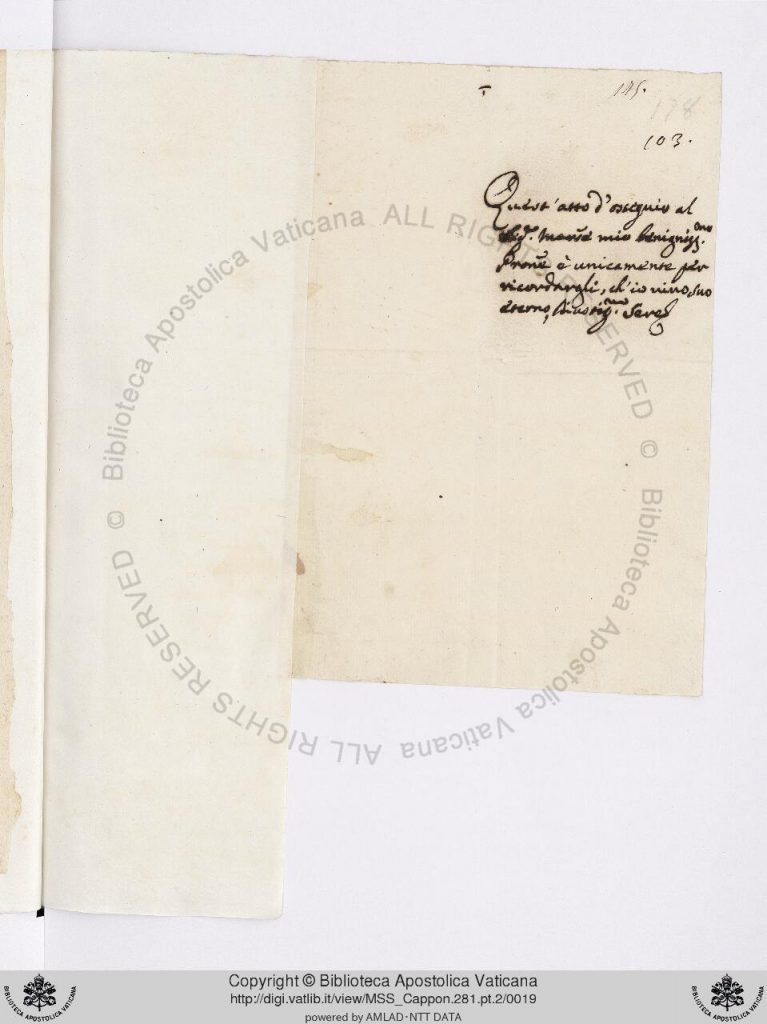 145.
178
103.
Quest'atto d'ossequio al
Sig.r Marse mio benigniss.mo
Prone è unicamente per
ricordargli, ch'io vivo suo
eterno, Serre
Copyright © Biblioteca Apostolica Vaticana
http://digi.vatlib.it/view/MSS_Cappon.281.pt.2/0019
powered by AMLAD·NTT DATA
© Biblioteca Apostolica Vaticana ALL RIGHTS RESERVED
© Biblioteca Apostolica Vaticana ALL RIGHTS RESERVED
BIBLIOTECA APOSTOLICA VATICANA
BIBLIOTECA APOSTOLICA VATICANA